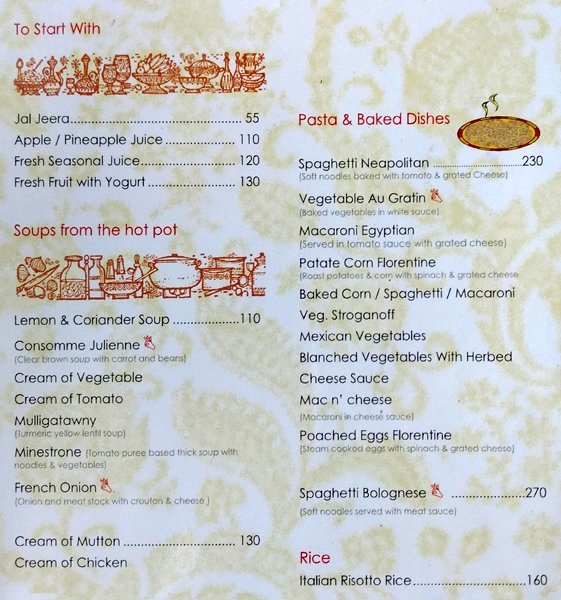 To Start With
Jal Jeera.................................................. 55
Apple / Pineapple Juice .................. 110
Fresh Seasonal Juice......................... 120
Fresh Fruit with Yogurt ...................... 130
Soups from the hot pot
Lemon & Coriander Soup ...................110
Consomme Julienne
(Clear brown soup with carrot and beans)
Cream of Vegetable
Cream of Tomato
Mulligatawny
(Turmeric yellow lentil soup)
Minestrone (Tomato puree based thick soup with
noodles & vegetables)
French Onion
(Onion and meat stock with crouton & cheese )
Cream of Mutton ............................. 130
Cream of Chicken
Pasta & Baked Dishes
Spaghetti Neapolitan .........................230
(Soft noodles baked with tomato & grated Cheese)
Vegetable Au Gratin
(Baked vegetables in white sauce)
Macaroni Egyptian
(Served in tomato sauce with grated cheese)
Patate Corn Florentine
(Roast potatoes & corn with spinach & grated cheese
Baked Corn / Spaghetti / Macaroni
Veg. Stroganoff
Mexican Vegetables
Blanched Vegetables With Herbed
Cheese Sauce
Mac n' cheese
(Macaroni in cheese sauce)
Poached Eggs Florentine
(Steam cooked eggs with spinach & grated cheese)
Spaghetti Bolognese ....................270
(Soft noodles served with meat sauce)
Rice
Italian Risotto Rice...............................160